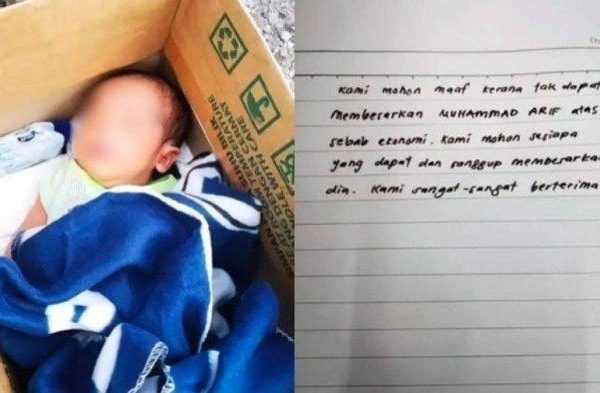 Kami mohon maaf kerana tak dapat
membesarkan MUHAMMAD ARIF atas
sebab ekonomi. Kami mohon sesiapa
yang dapat dan sanggup membesarka
dia. Kami sangat-sangat berterima
WITH CARE